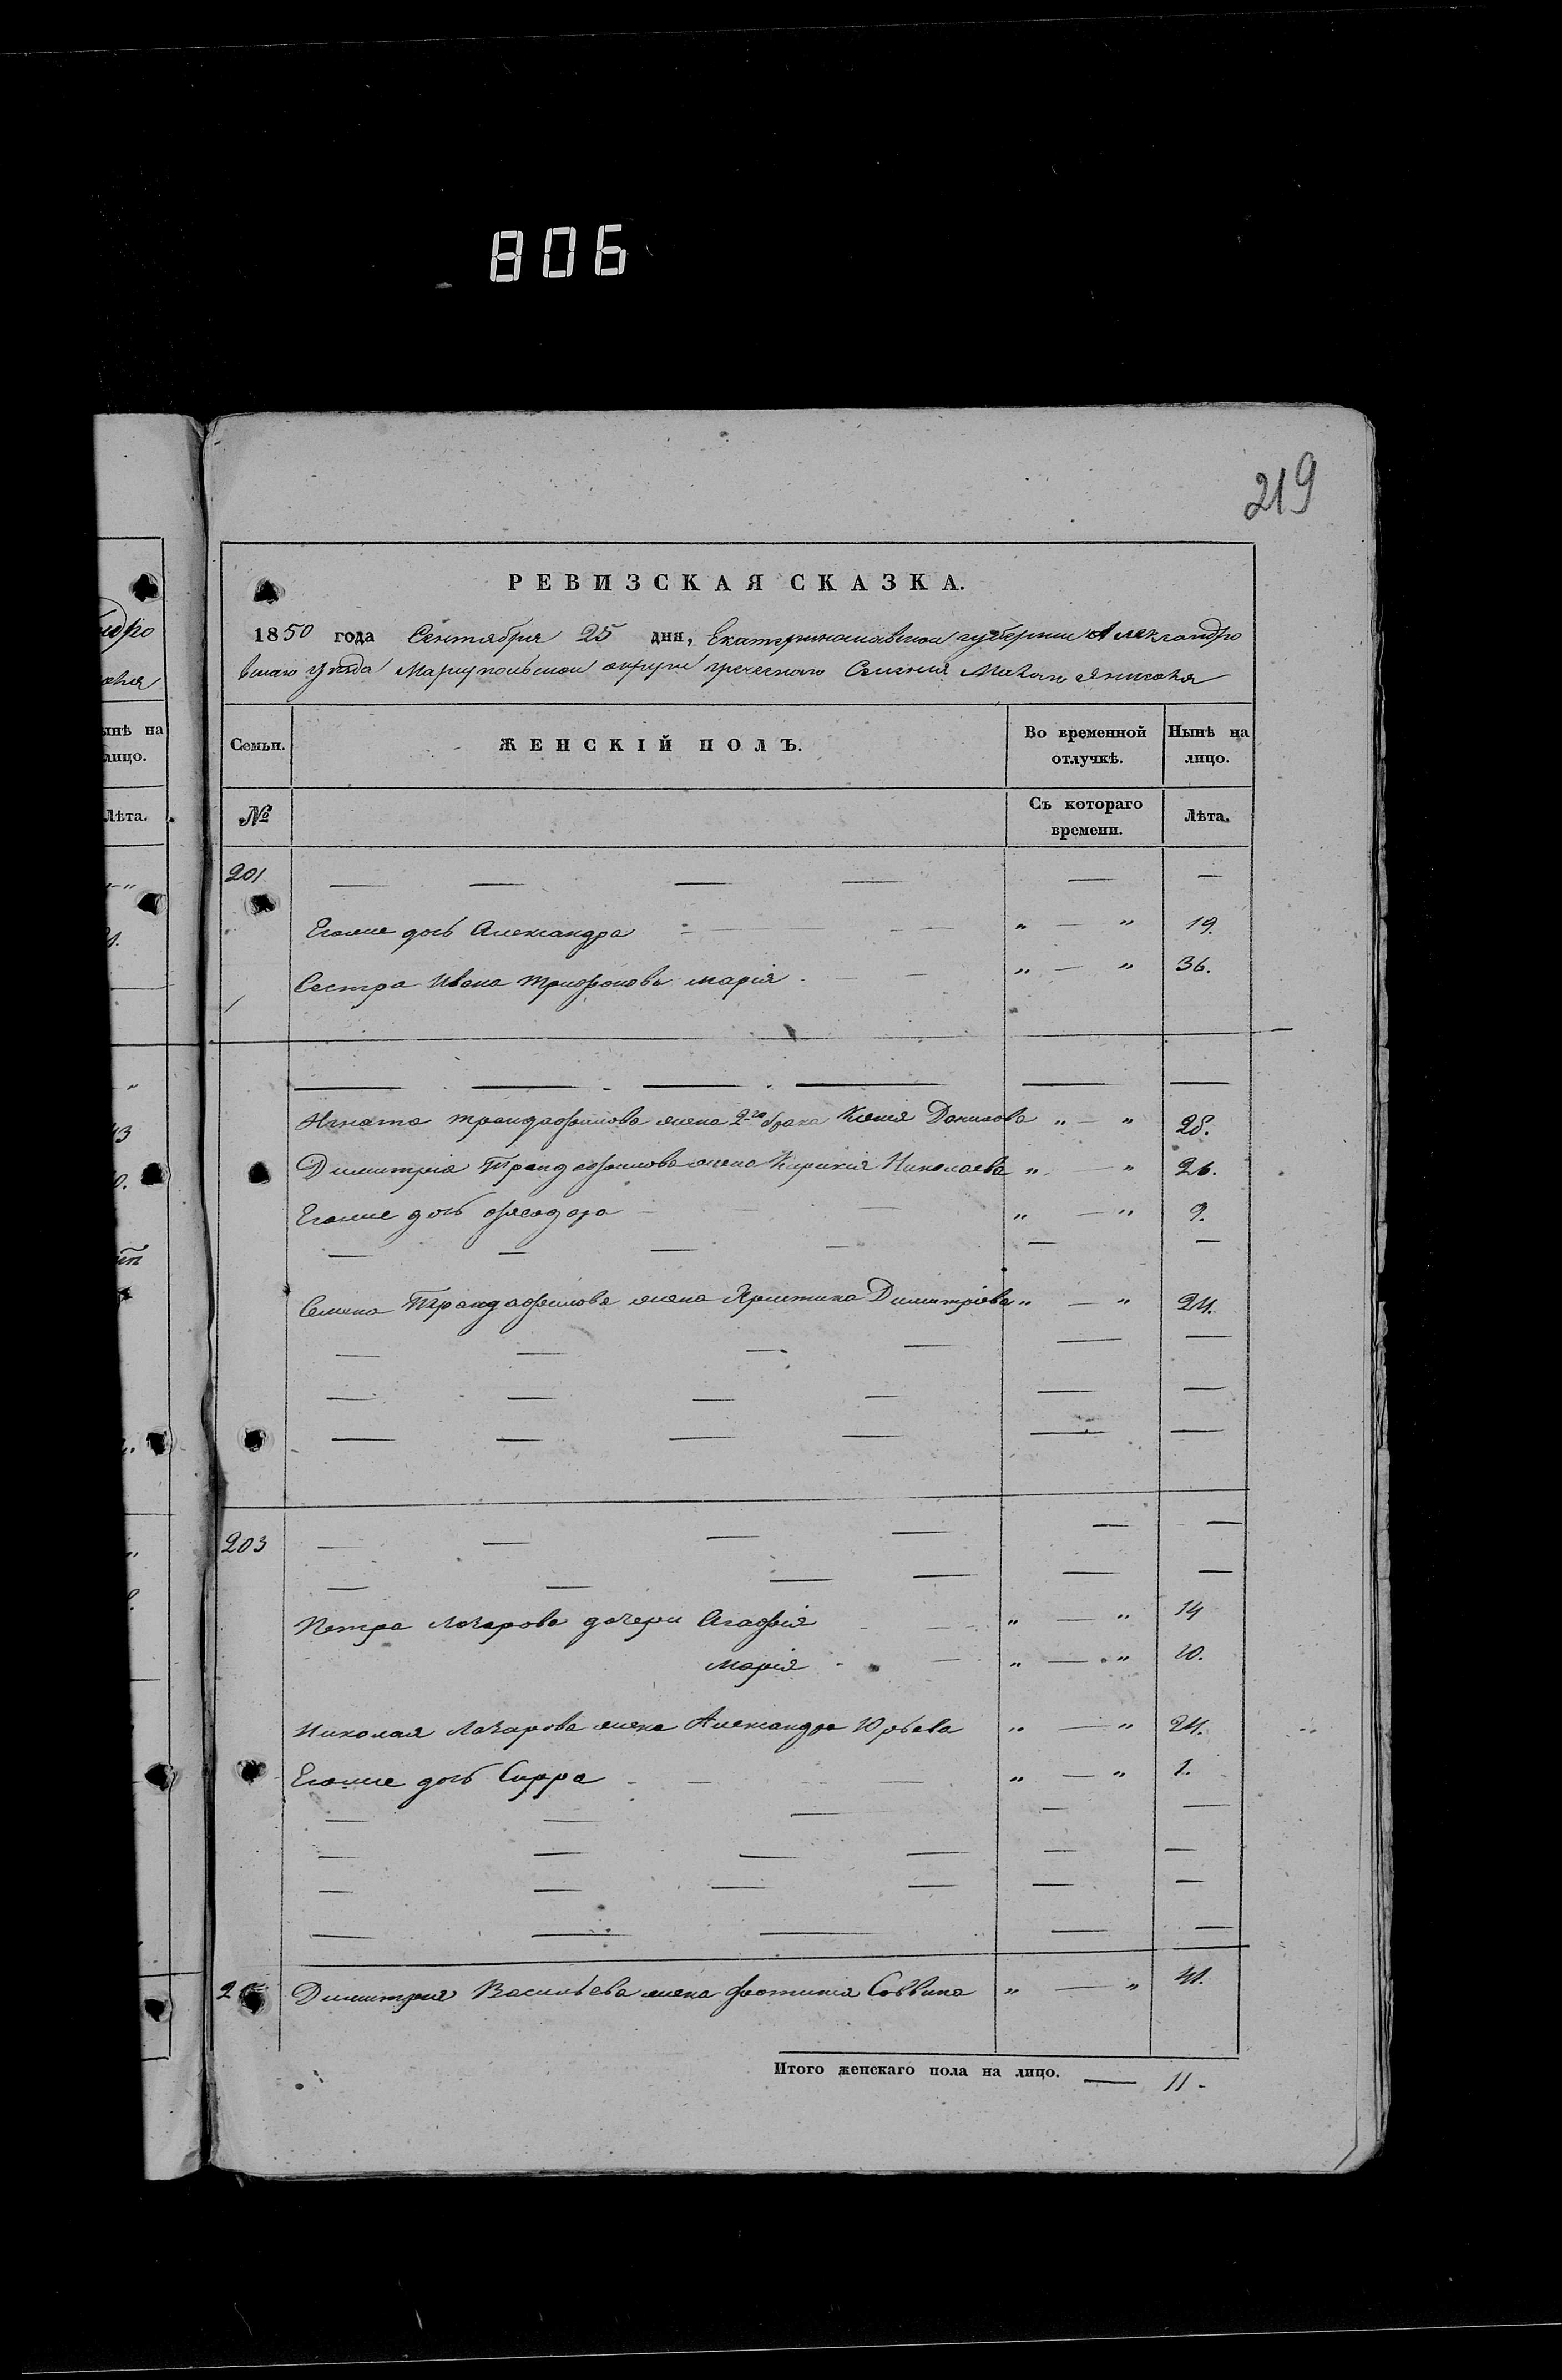 806
219
РЕВИЗСКАЯ СКАЗКА.
1850 года Сентября 25 дня, Екатеринославской губернии Александро
вскаго уѣзда Мариупольской округи греческаго Селения Малои Янисоля
Семьи. ЖЕНСКІЙ ПОЛЪ. Во временной отлучкѣ. Нынѣ на лицо.
№ Съ котораго времени. Лѣта.
201 — — — — — —
Егоже дочь Александра „ — „ 19.
Сестра Ивана Трифонова Марія „ — „ 36.
— — — — — —
Игната Трандафилова жена 2го брака Ксенія Данилова „ — „ 28.
Димитрія Трандафилова жена Кирикія Николаева „ — „ 26.
Егоже дочь Феодора „ — „ 9.
— — — — — —
Семена Трандафилова жена Христина Димитріева „ — „ 24.
— — — — — —
— — — — — —
— — — — — —
203 — — — — — —
— — — — — —
Петра Лазарова дочери Агафія „ — „ 14
Марія „ — „ 10.
Николая Лазарова жена Александра Юрьева „ — „ 24.
Егоже дочь Сарра „ — „ 1.
— — — — —
— — — — — —
— — — — — —
— — — — —
Димитрия Васильева жена Фотиния Саввина „ — „ 41.
Итого женскаго пола на лицо. — 11.